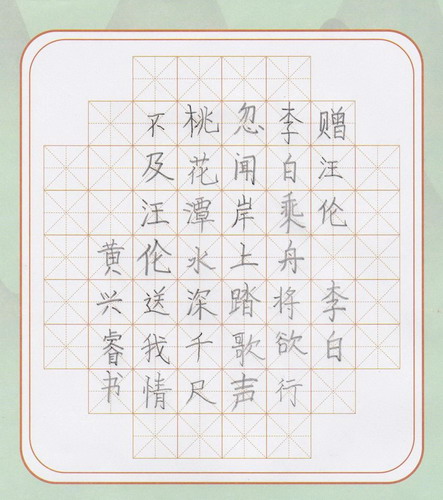 赠汪伦 李白
李白乘舟将欲行
忽闻岸上踏歌声
桃花潭水深千尺
不及汪伦送我情
黄兴睿书